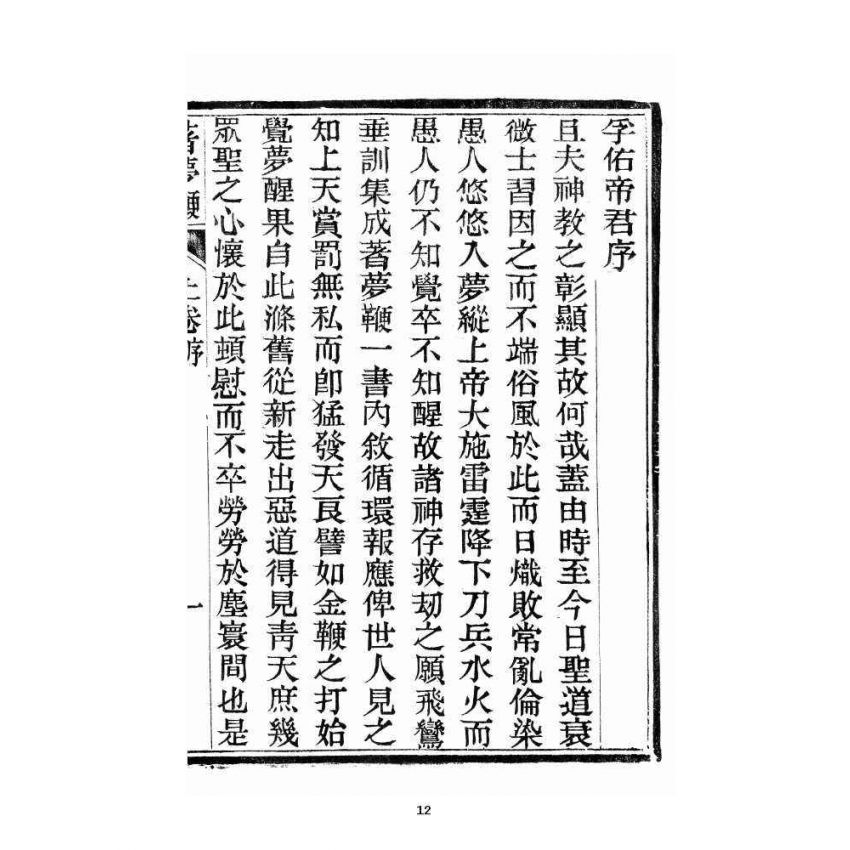 孚佑帝君序
且夫神教之彰顯其故何哉蓋由時至今日聖道衰
微士習因之而不端俗風於此而日熾敗常亂倫染
愚人悠悠入夢縱上帝大施雷霆降下刀兵水火而
愚人仍不知覺卒不知醒故諸神存救刼之願飛鸞
垂訓集成著夢鞭一書內敘循環報應俾世人見之
知上天賞罰無私而卽猛發天良譬如金鞭之打始
覺夢醒果自此滌舊從新走出惡道得見靑天庶幾
眾聖之心懷於此頓慰而不卒勞勞於塵寰間也是
蓍夢鞭 上卷序 一
12